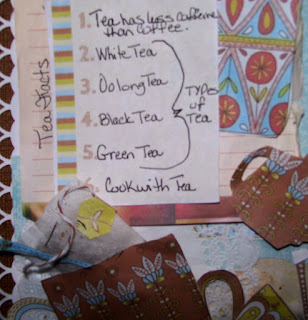 1. Tea has less caffeine
than coffee.
2. White Tea
3. Oolong Tea
4. Black Tea
5. Green Tea
6. Cook with Tea
Types
of
Tea
Tea Facts